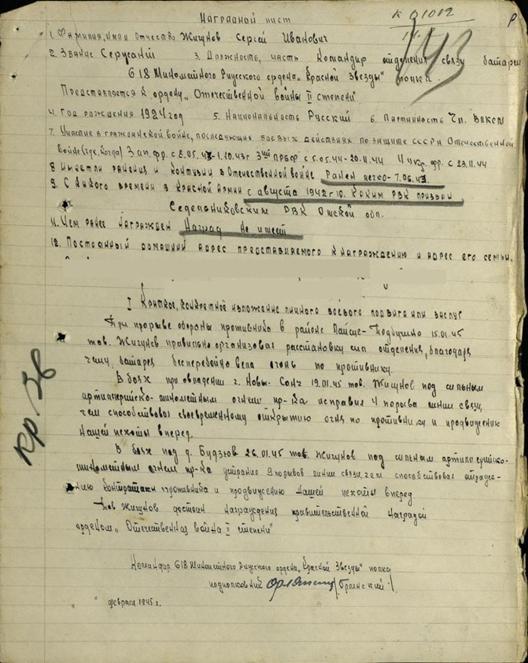 к 01012
143
Наградной лист
1. Фамилия, имя отчество Жигунов Сергей Иванович
2. Звание Сержант 3. Должность, часть Командир отделения связи батареи
618 Миномётного Рижского ордена „Красной Звезды" полка.
Представляется к ордену „Отечественной войны II степени"
4. Год рождения 1924 год 5. Национальность Русский 6. Партийность Чл. ВЛКСМ
7. Участие в гражданской войне, последующих боевых действиях по защите СССР и Отечественной
войне (где, когда) 3 ап. фр. с 5.05.43-1.10.43г 3ий приб ф с 5.05.44-20.11.44 4 укр. фр. с 23.11.44
8. Имеет ли ранения и контузии в Отечественной войне Ранен легко-7.06.43
9. С какого времени в Красной Армии с августа 1942г 10. Каким РВК призван
Седельниковским РВК Омской обл.
11. Чем ранее награжден Наград не имеет
12. Постоянный домашний адрес представляемого к награждению и адрес его семьи.
I Краткое, конкретное изложение личного боевого подвига или заслуг
При прорыве обороны противника в районе 15.01.45
тов. Жигунов правильно организовал расстановку сил отделения, благодаря
чему, батарея бесперебойно вела огонь по противнику.
В боях при овладении г. Новы-Сонч 19.01.45 тов. Жигунов под сильным
артиллерийско-минометным огнем пр-ка исправил 4 порыва линии связи,
чем способствовал своевременному открытию огня по противнику и продвижению
нашей пехоты вперед.
В боях под д. Будзов 26.01.45 тов. Жигунов под сильным артиллерийско-
минометным огнем пр-ка устранил порывов линии связи, чем способствовал отраже-
нию контратаки противника и продвижению нашей пехоты вперед
тов Жигунов достоин награждения правительственной наградой
орденом „Отечественная война II степени"
Командир 618 Миномётного Рижского ордена „Красной Звезды" полка
подполковник /Бранский/
февраля 1945г.
кр 36